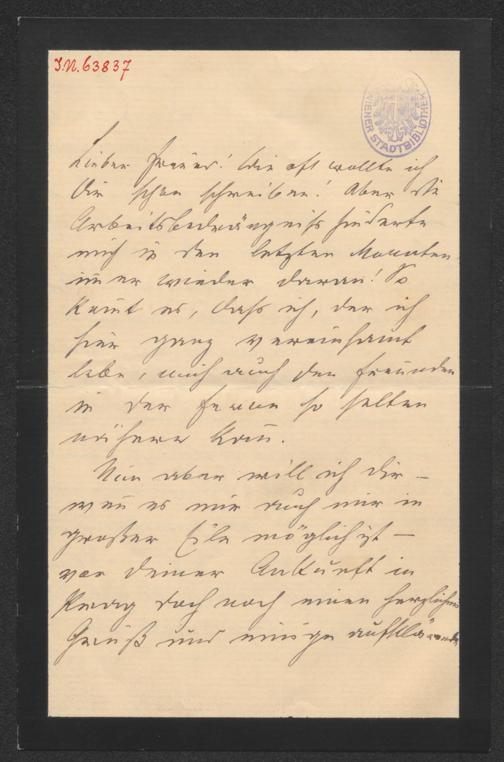 I.N. 63837
WIENER STADTBIBLIOTHEK
Lieber Freund! Wie oft wollte ich
Dir schon schreiben! Aber die
Arbeitsbedrängniss hinderte
mich in den letzten Monaten
immer wieder daran! So
kam̅t es, dass ich, der ich
hier ganz vereinsamt
lebe, mich auch den Freunden
in der Ferne so selten
nähern kan̅.
Nun aber will ich Dir –
wen̅ es mir auch nur in
großer Eile möglich ist –
vor Deiner Ankunft in
Prag doch noch einen herzlichen
Gruß und einige aufklärende